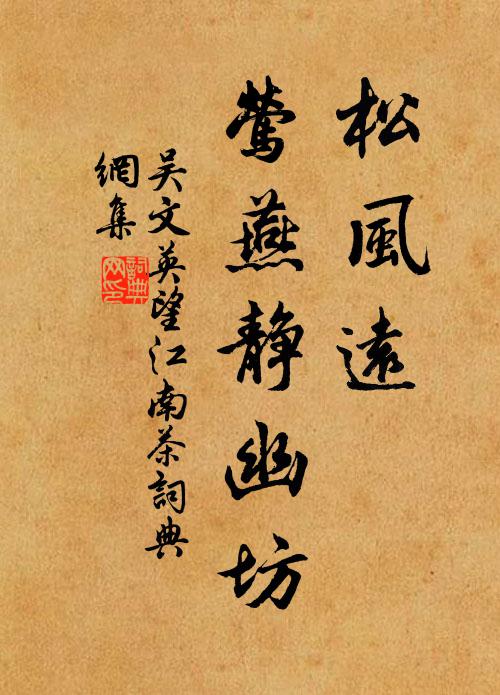 松風遠
鶯燕静幽坊
吴文英望江南茶詞典
網集
詞典
网印